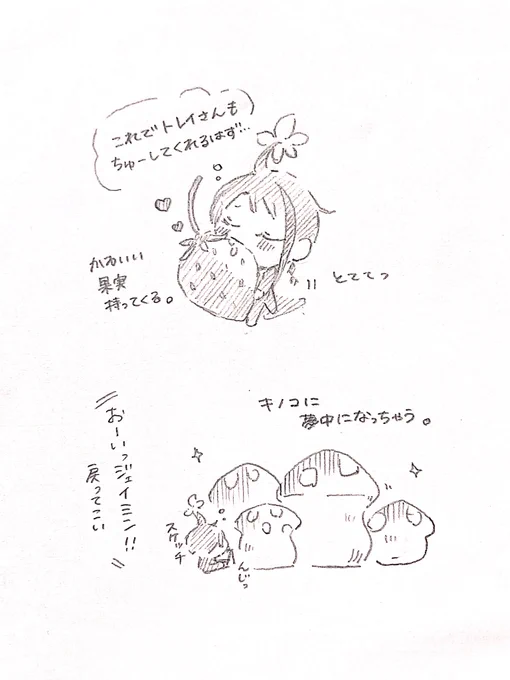 これでトレイさんも
ちゅーしてくれるはず…
かわいい
果実
持ってくる。
とててっ
キノコに
夢中になっちゃう。
おーいっジェイミン!!
戻ってこい
スケッチ
んじっ